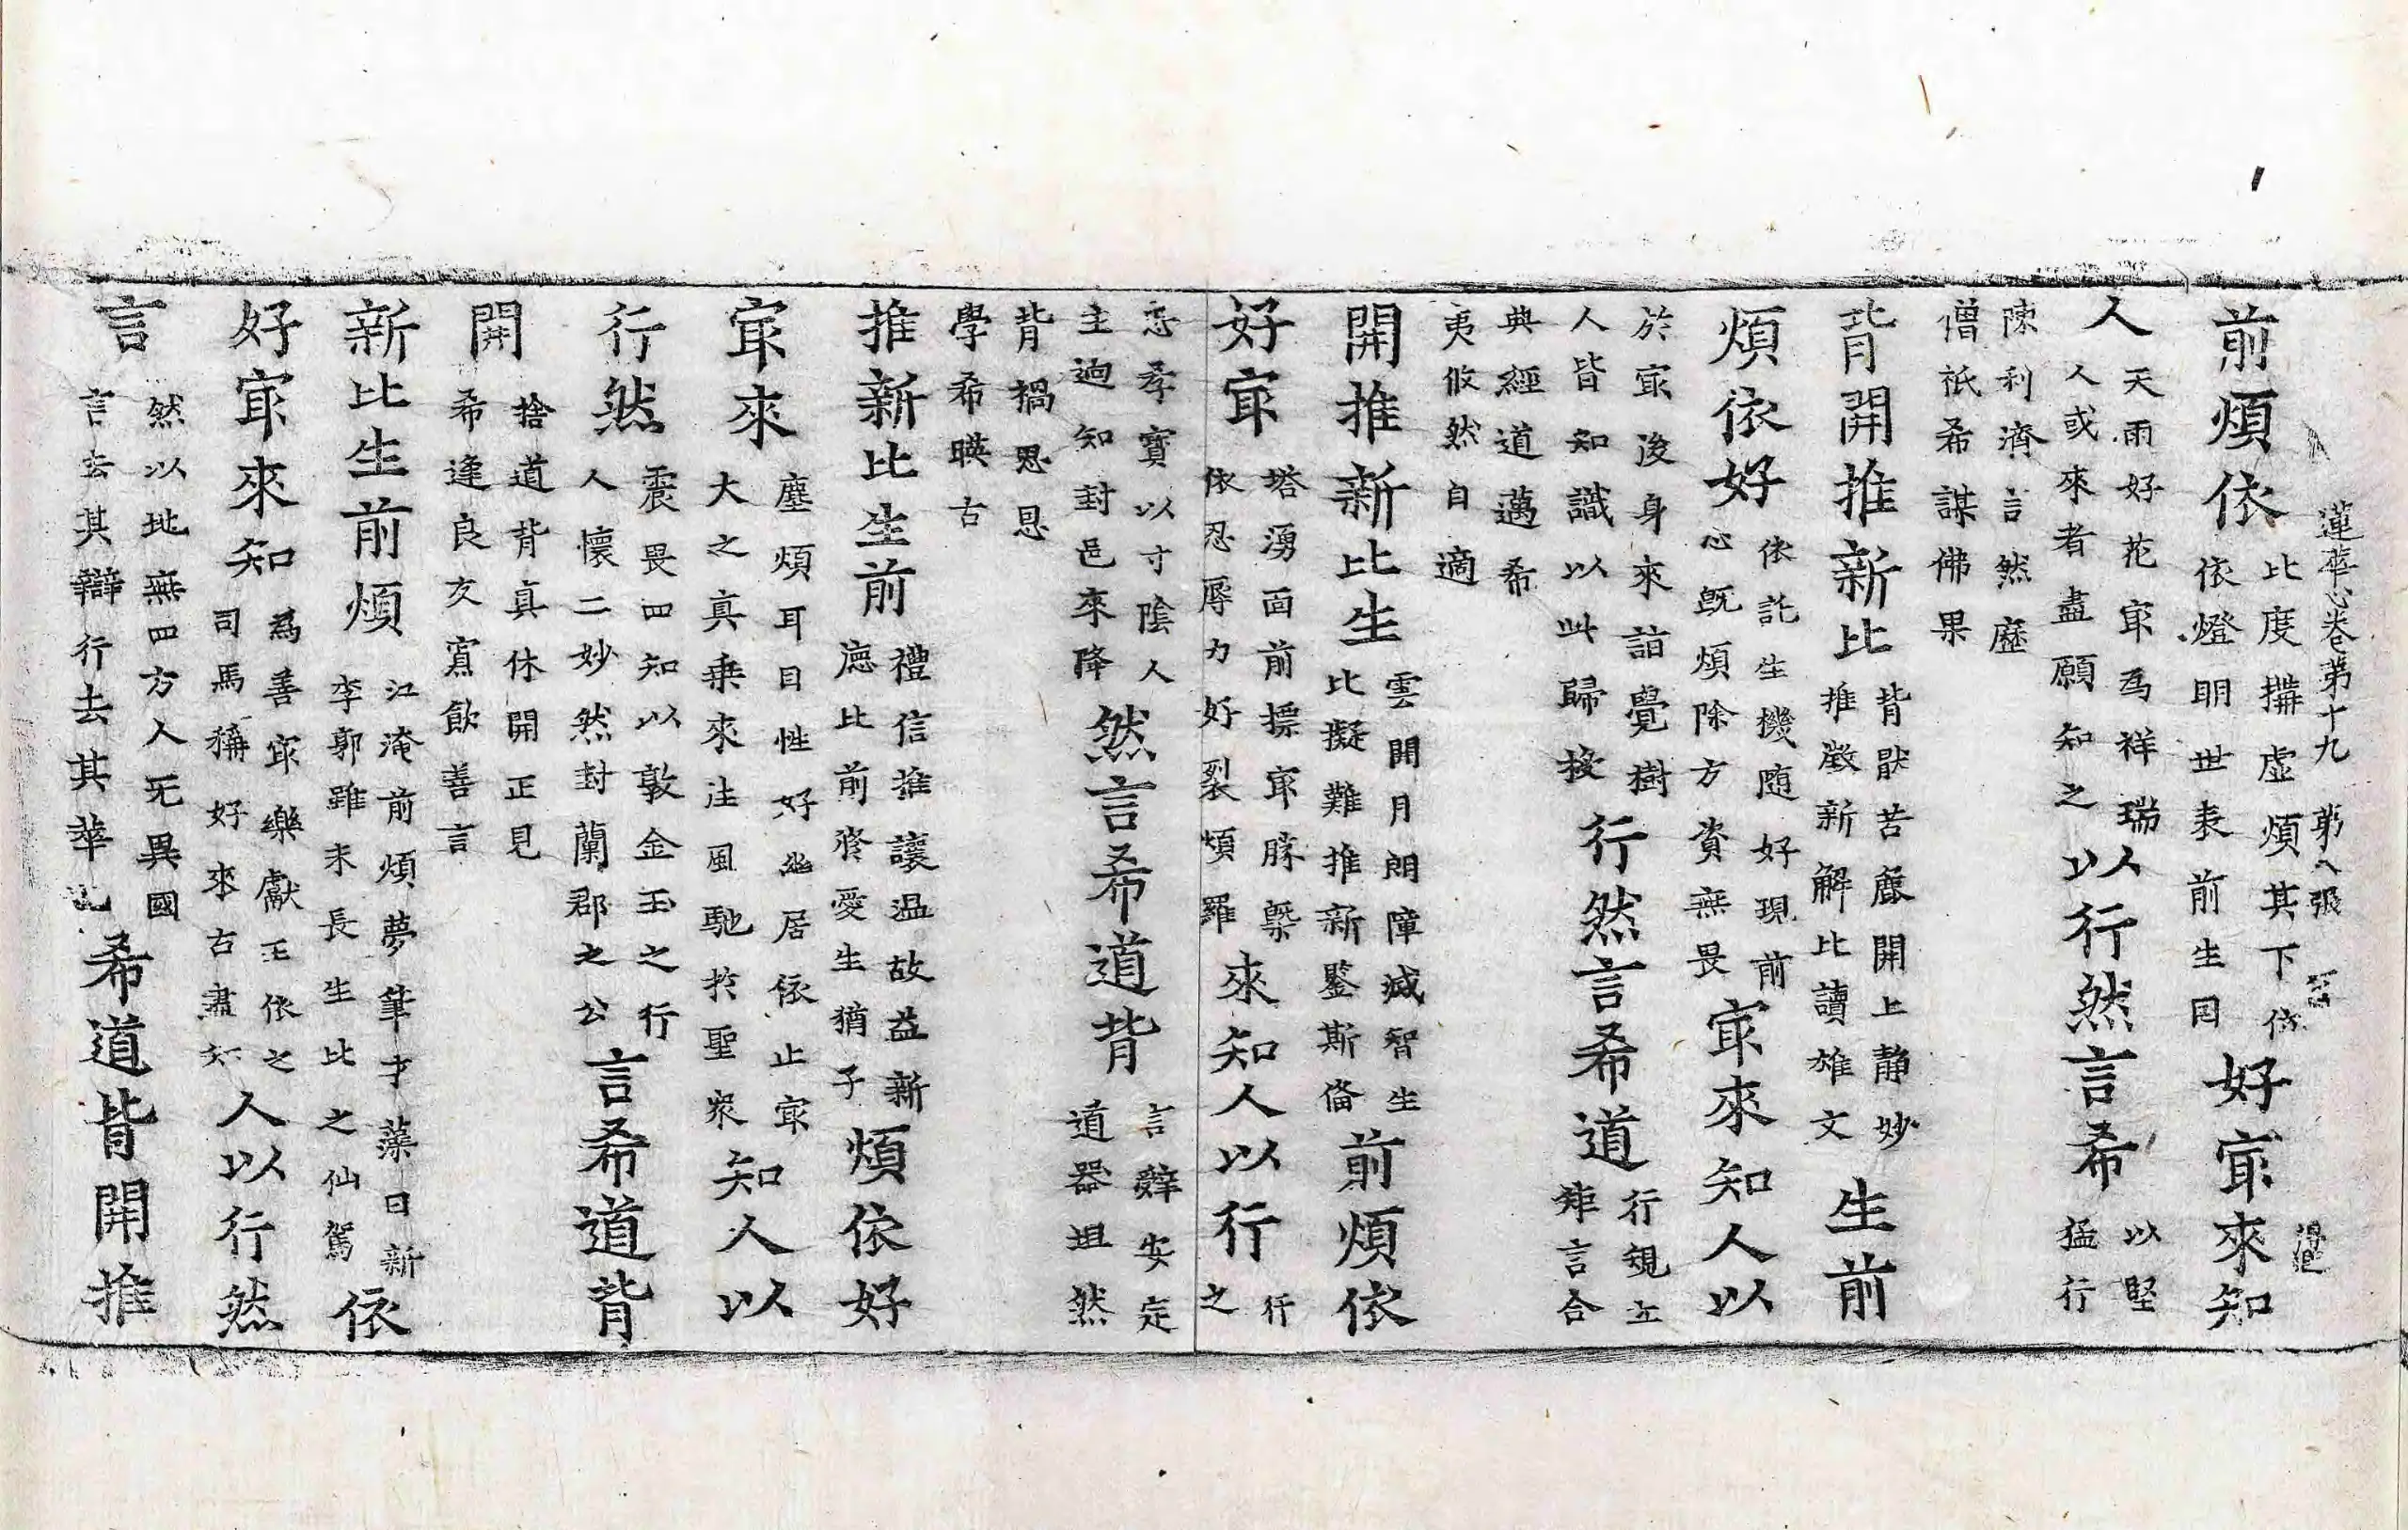 蓮華心卷第十九 第八張
前煩依比度撰虛煩其下依
依燈明世表前生因好㝡來知
人天雨好花㝡為祥瑞
人或來者盡願知之以行然言希以堅
猛行
陳利濟言然歷
僧祇希謀佛果
背開推新比背猒苦麤開上靜妙
推徵新解比讀雄文生前
煩依好依託生機随好現前
心旣煩除方資無畏㝡來知人以
於㝡後身來詣覺樹
人皆知識以此歸投行然言希道行規立
矩言合
典經道邁希
夷攸然自適
開推新比生雲開月朗障滅智生
比擬難推新鑒斯俻前煩依
好㝡塔湧面前摽㝡勝槩
依忍辱力好裂煩羅來知人以行行
之
忠孝寶以寸陰人
主逈知封邑來降然言希道背言辭安定
道器坦然
背搨思
學希暎古
推新比生前禮信推讓温故益新
應比前脩愛生猶子煩依好
㝡來塵煩耳目性好幽居依止㝡
大之真乗來注風馳扵聖衆知人以
行然震畏四知以敦金玉之行
人懷二妙然封蘭郡之公言希道背
開捨道背真休開正見
希逢良友寡飲善言
新比生前煩江淹前煩夢筆才藻日新
李郭雖未長生比之仙駕依
好㝡來知為善㝡樂獻王依之
司馬稱好來古肅知人以行然
言然以地無四方人无異國
言去其辯行去其華希道背開推